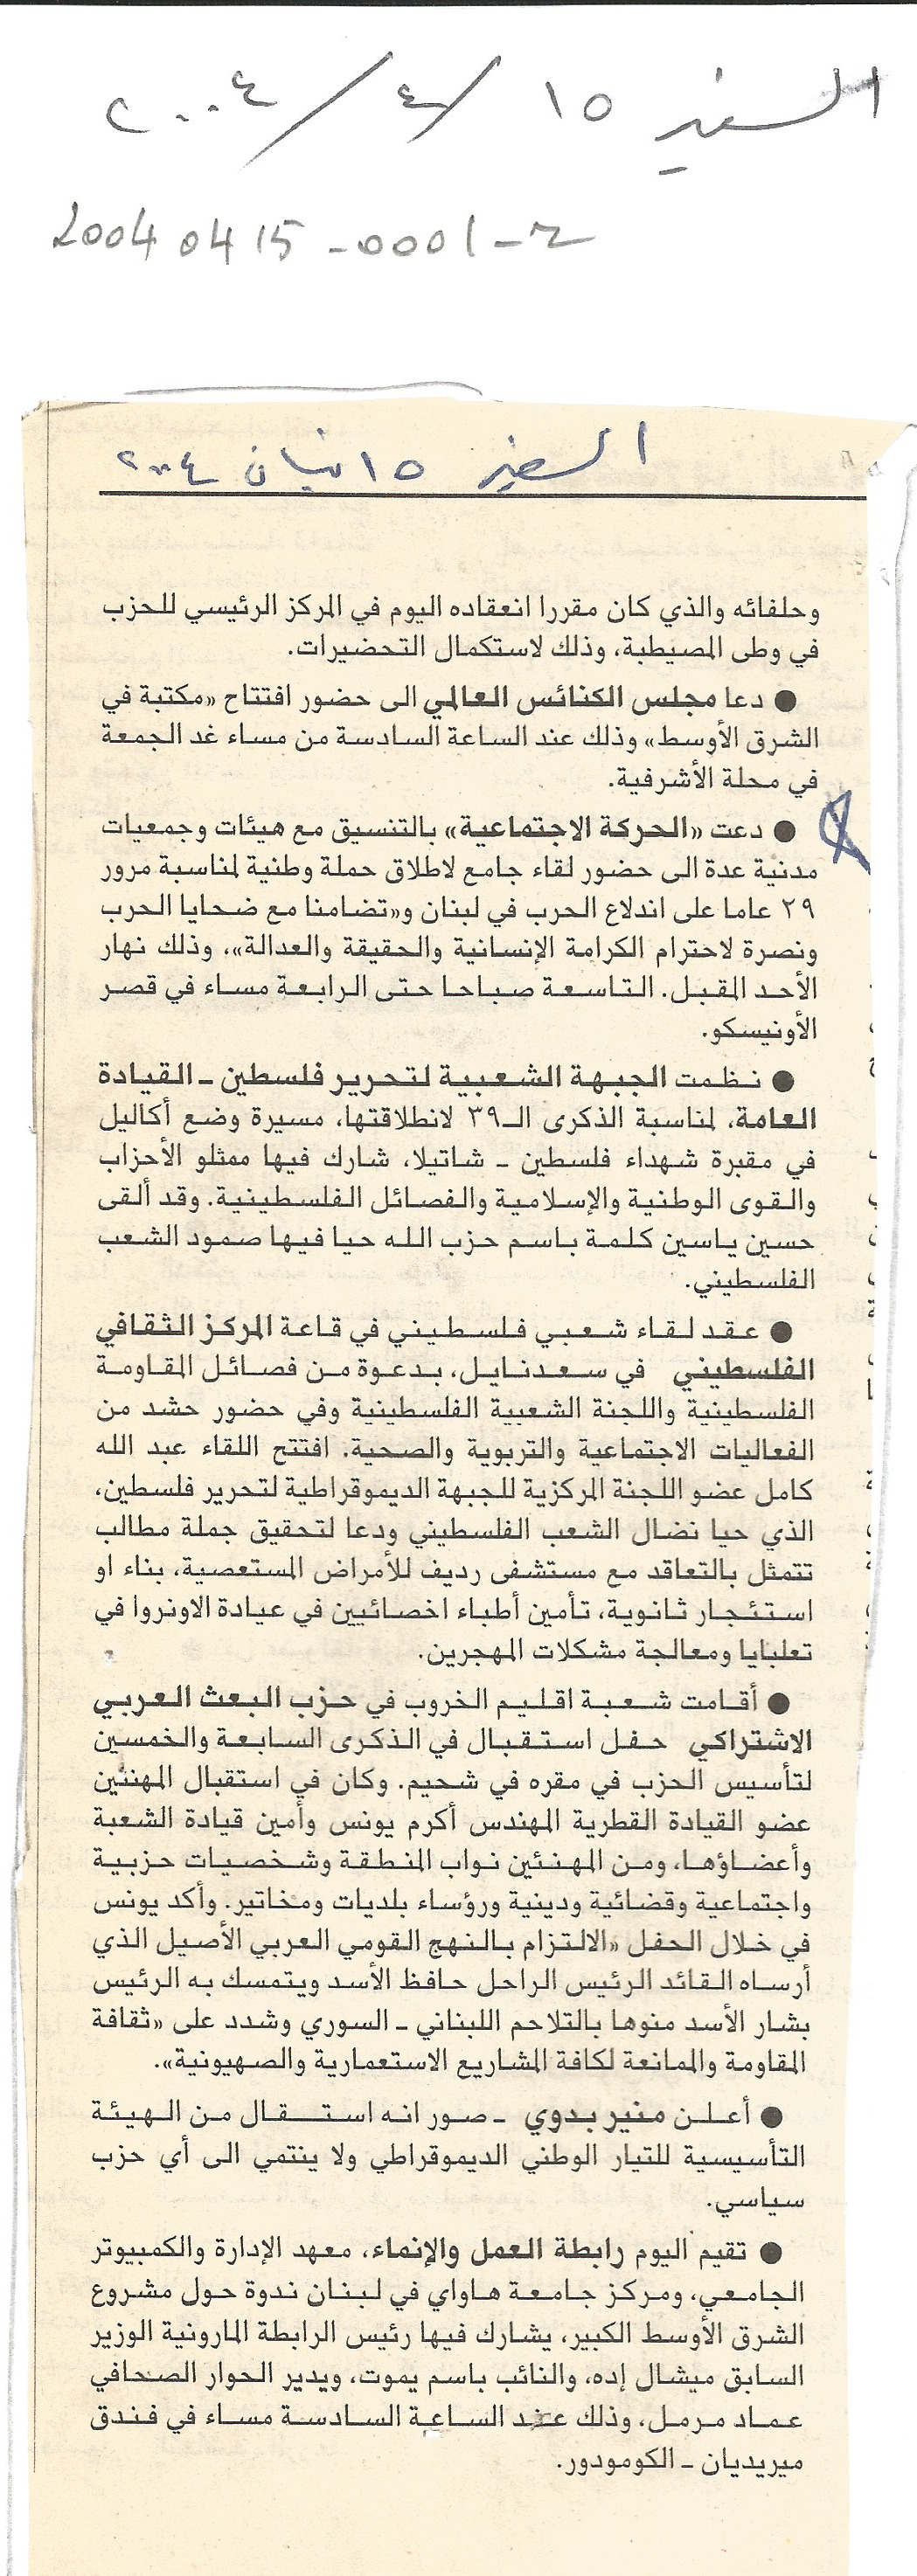 السفير ١٥ / ٤ / ٢٠٠٤
20040415-0001-2
السفير ١٥ نيسان ٢٠٠٤
وحلفائه والذي كان مقررا انعقاده اليوم في المركز الرئيسي للحزب
في وطى المصيطبة، وذلك لاستكمال التحضيرات.
● دعا مجلس الكنائس العالمي الى حضور افتتاح «مكتبة في
الشرق الأوسط» وذلك عند الساعة السادسة من مساء غد الجمعة
في محلة الأشرفية.
● دعت «الحركة الاجتماعية» بالتنسيق مع هيئات وجمعيات
مدنية عدة الى حضور لقاء جامع لاطلاق حملة وطنية لمناسبة مرور
٢٩ عاما على اندلاع الحرب في لبنان و«تضامنا مع ضحايا الحرب
ونصرة لاحترام الكرامة الإنسانية والحقيقة والعدالة»، وذلك نهار
الأحد المقبل. التاسعة صباحا حتى الرابعة مساء في قصر
الأونيسكو.
● نظمت الجبهة الشعبية لتحرير فلسطين ـ القيادة
العامة، لمناسبة الذكرى الـ٣٩ لانطلاقتها، مسيرة وضع أكاليل
في مقبرة شهداء فلسطين ـ شاتيلا، شارك فيها ممثلو الأحزاب
والقوى الوطنية والإسلامية والفصائل الفلسطينية. وقد ألقى
حسين ياسين كلمة باسم حزب الله حيا فيها صمود الشعب
الفلسطيني.
● عقد لقاء شعبي فلسطيني في قاعة المركز الثقافي
الفلسطيني في سعدنايل، بدعوة من فصائل المقاومة
الفلسطينية واللجنة الشعبية الفلسطينية وفي حضور حشد من
الفعاليات الاجتماعية والتربوية والصحية. افتتح اللقاء عبد الله
كامل عضو اللجنة المركزية للجبهة الديموقراطية لتحرير فلسطين،
الذي حيا نضال الشعب الفلسطيني ودعا لتحقيق جملة مطالب
تتمثل بالتعاقد مع مستشفى رديف للأمراض المستعصية، بناء او
استئجار ثانوية، تأمين أطباء اخصائيين في عيادة الاونروا في
تعلبايا ومعالجة مشكلات المهجرين.
● أقامت شعبة اقليم الخروب في حزب البعث العربي
الاشتراكي حفل استقبال في الذكرى السابعة والخمسين
لتأسيس الحزب في مقره في شحيم. وكان في استقبال المهنئين
عضو القيادة القطرية المهندس أكرم يونس وأمين قيادة الشعبة
وأعضاؤها، ومن المهنئين نواب المنطقة وشخصيات حزبية
واجتماعية وقضائية ودينية ورؤساء بلديات ومخاتير. وأكد يونس
في خلال الحفل «الالتزام بالنهج القومي العربي الأصيل الذي
أرساه القائد الرئيس الراحل حافظ الأسد ويتمسك به الرئيس
بشار الأسد منوها بالتلاحم اللبناني ـ السوري وشدد على «ثقافة
المقاومة والممانعة لكافة المشاريع الاستعمارية والصهيونية».
● أعلن منير بدوي ـ صور انه استقال من الهيئة
التأسيسية للتيار الوطني الديموقراطي ولا ينتمي الى أي حزب
سياسي.
● تقيم اليوم رابطة العمل والإنماء، معهد الإدارة والكمبيوتر
الجامعي، ومركز جامعة هاواي في لبنان ندوة حول مشروع
الشرق الأوسط الكبير، يشارك فيها رئيس الرابطة المارونية الوزير
السابق ميشال إده، والنائب باسم يموت، ويدير الحوار الصحافي
عماد مرمل، وذلك عند الساعة السادسة مساء في فندق
ميريديان ـ الكومودور.